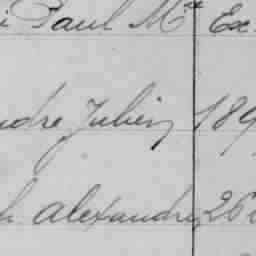 i Paul Mce Ex
ndre Julien 189
h Alexandre 26